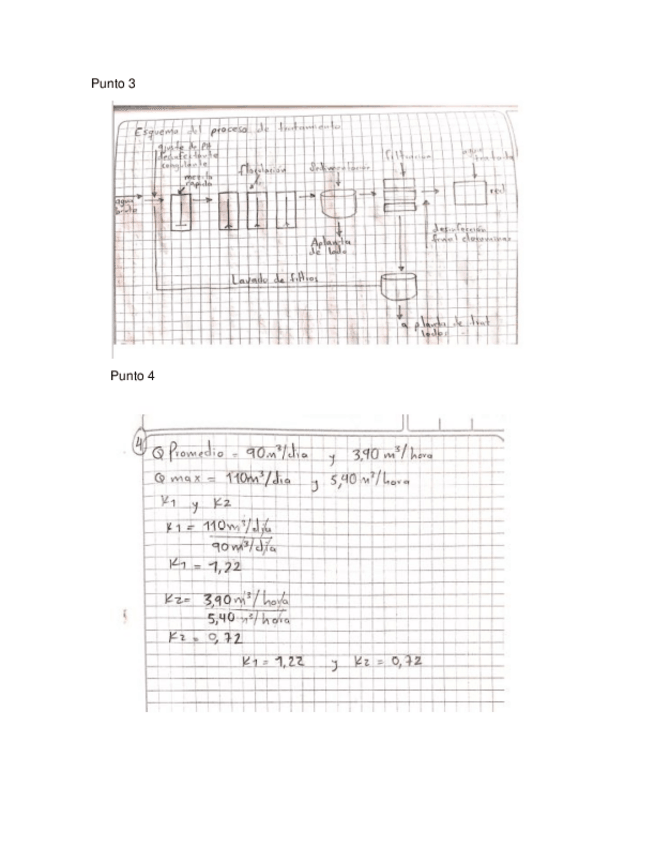 Punto 3
Esquema del proceso de tratamiento
ajuste de PH
desinfectante
coagulante
mezcla
rapida
floculación
Sedimentador
filtración
agua
tratada
agua
bruta
red
desinfección
final
A planta
de lodo
Lavado de filtros
a planta de trat
lodos
Punto 4
4
Q Promedio = 90m³/dia y 3,90 m³/hora
Q max = 110m³/dia y 5,40 m³/hora
K1 y K2
K1 = 110m³/día
90m³/día
K1 = 1,22
K2= 3,90m³/hora
5,40 m³/hora
K2 = 0,72
K1 = 1,22 y K2 = 0,72